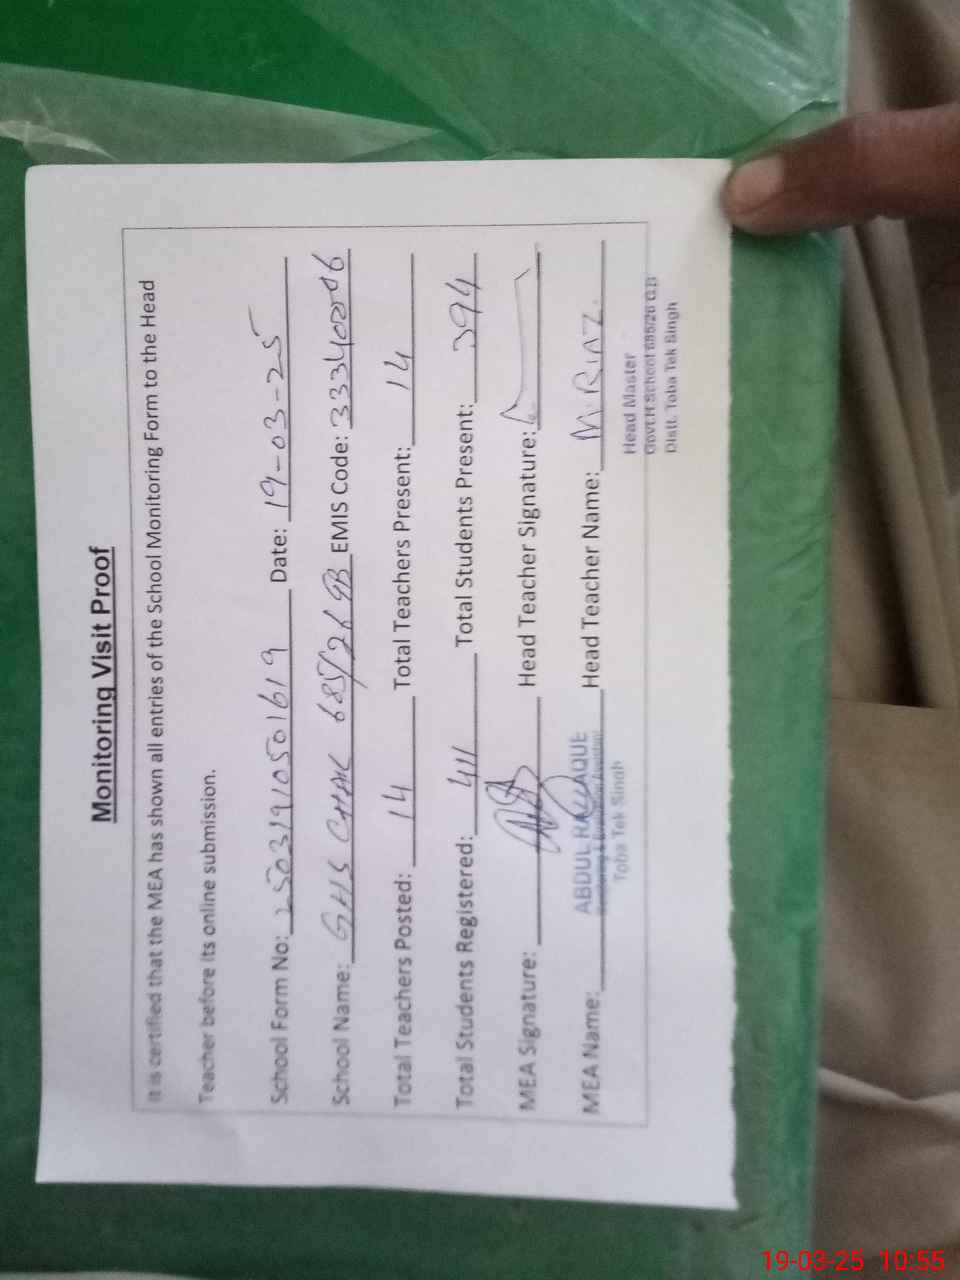 Monitoring Visit Proof
It is certified that the MEA has shown all entries of the School Monitoring Form to the Head
Teacher before its online submission.
School Form No: 25031910501619 Date: 19-03-25
School Name: GHS CHAK 685/26 GB EMIS Code: 33340006
Total Teachers Posted: 14 Total Teachers Present: 14
Total Students Registered: 411 Total Students Present: 394
MEA Signature: Head Teacher Signature:
MEA Name: ABDUL RAZZAQUE Head Teacher Name: M RIAZ.
Monitoring & Evaluation Assistant
Toba Tek Singh
Head Master
Govt.H.School 685/26 G.B
Distt. Toba Tek Singh
19-03-25 10:55